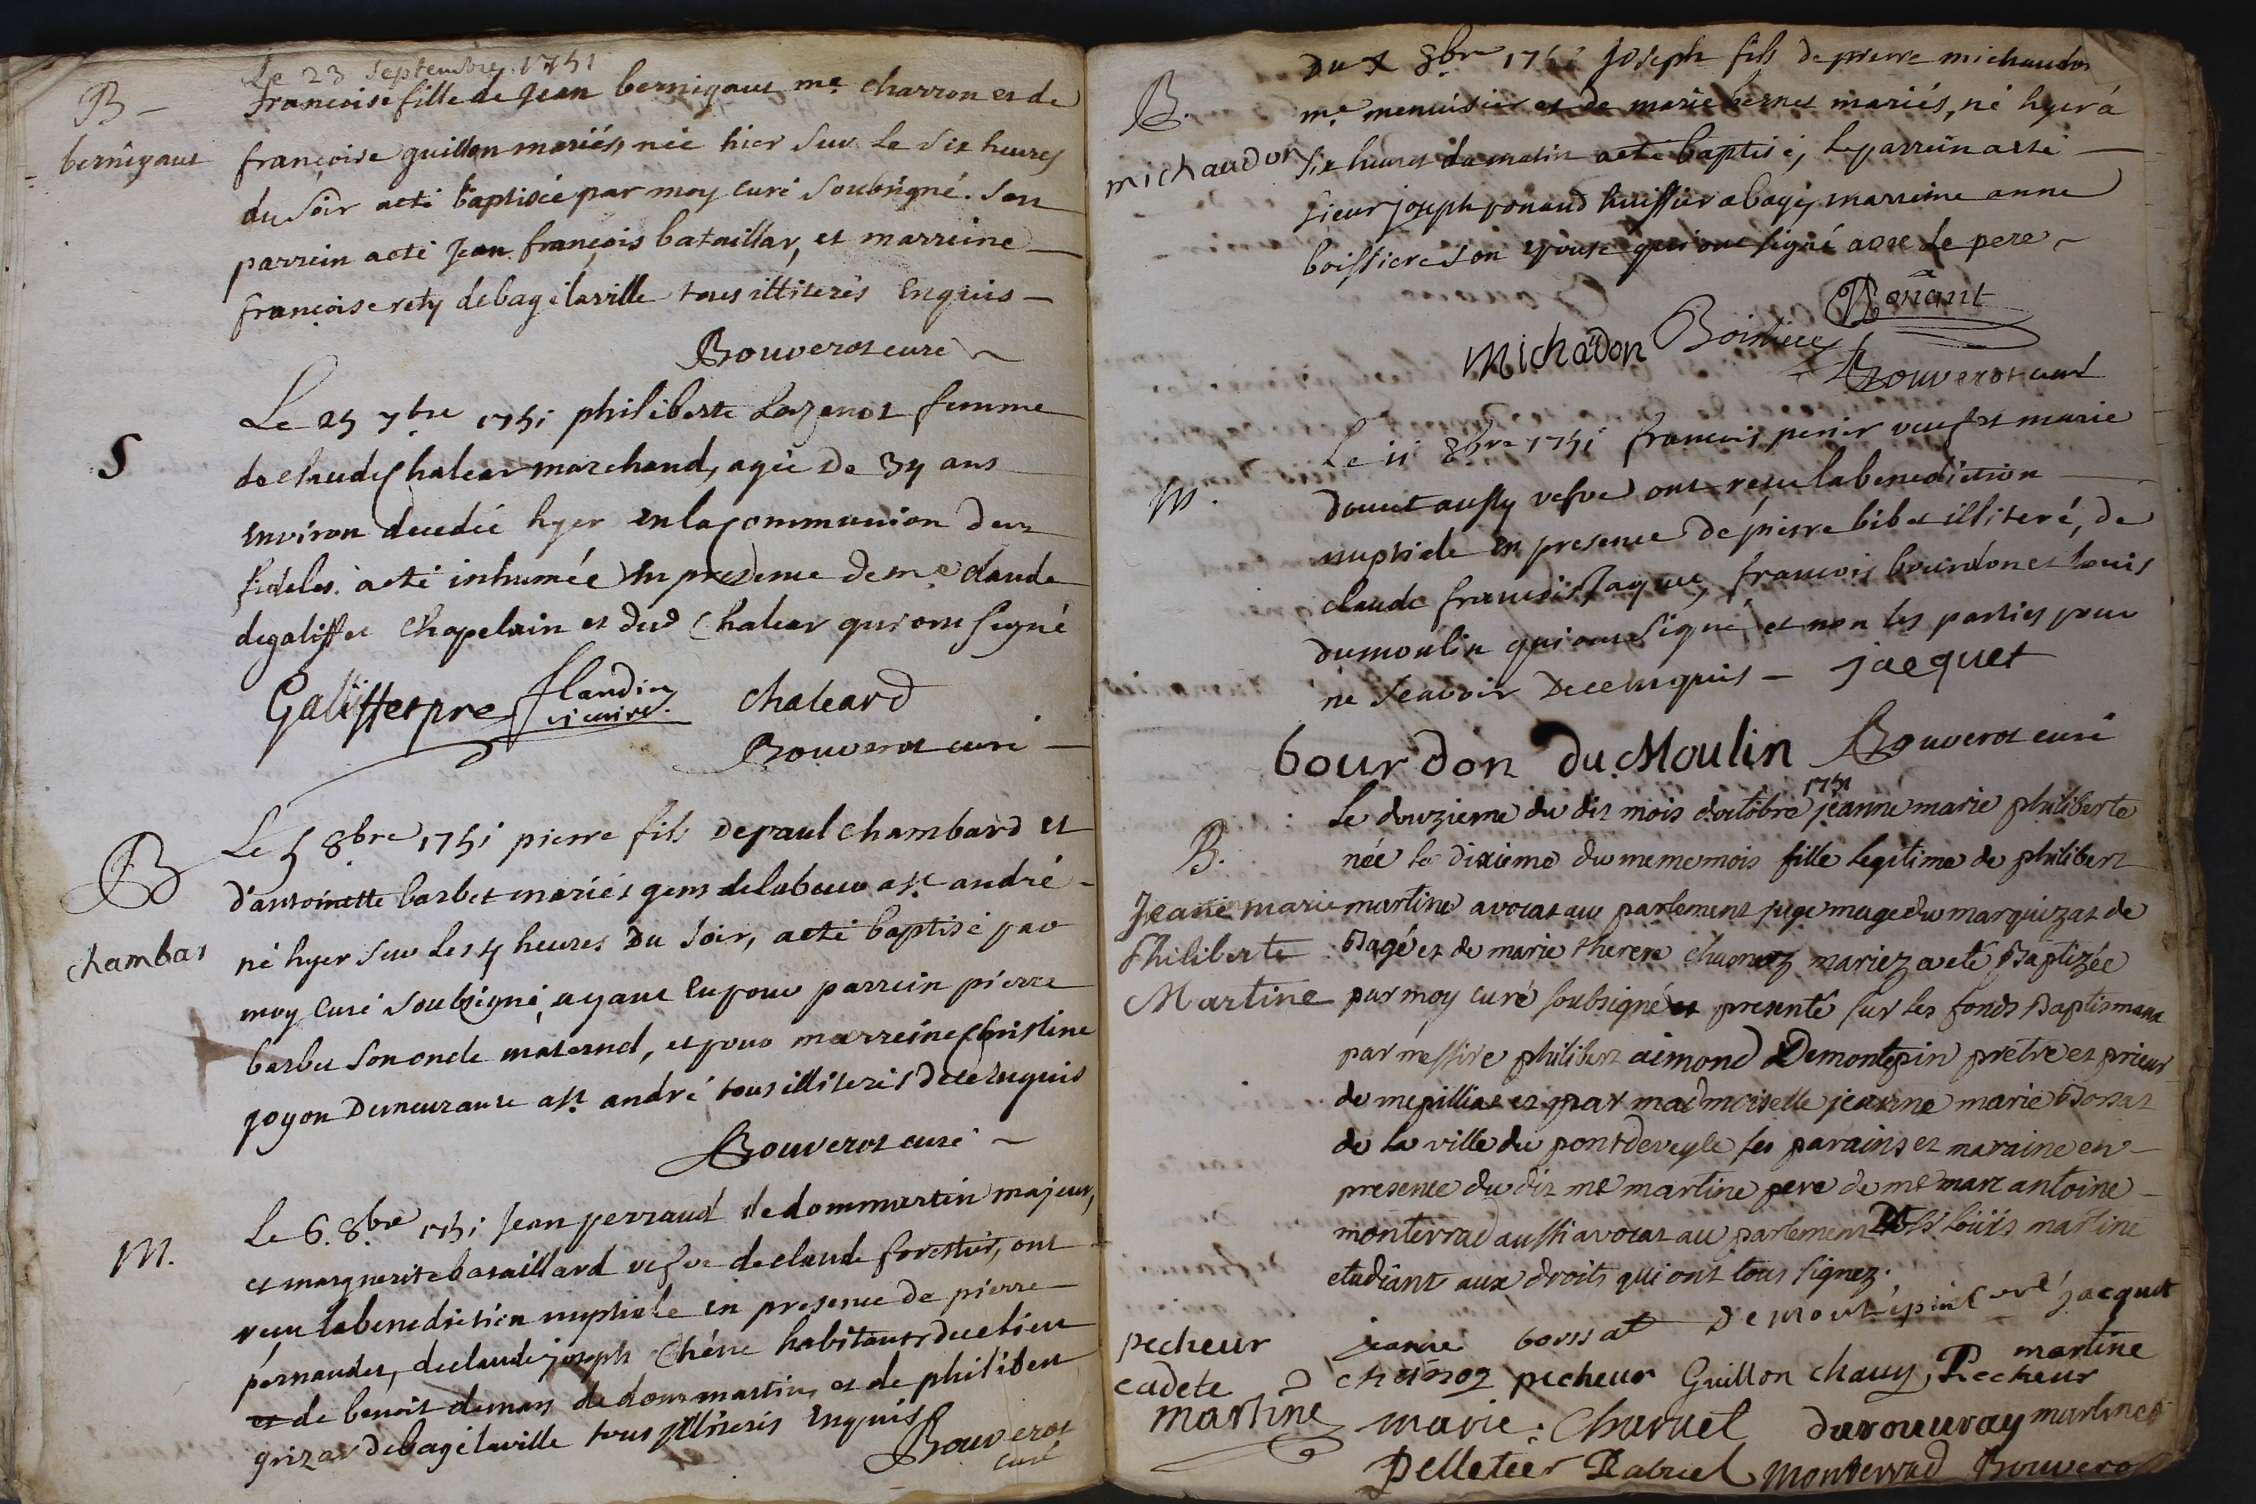 Le 23 Septembre 1751
B -
bernigaut
francoise fille de Jean bernigaut me charron et de
françoise guillon mariés, née hier sur le six heures
du soir a eté baptisée par moy curé soubsigné. Son
parrein a eté Jean françois bataillar, et marreine
françoise rety de bagé la ville tous illiterés enquis -
Bouverot curé
S
Le 25 7bre 1751 philiberte femme
de claude Chalear marchand, agée de 34 ans
environ decedée hyer en la communion des
fideles. a eté inhumée en presence de me claude
degaliffet chapelain et dud Chalear qui ont signé
Galiffet pre flandin vicaire chaleard
Bouverot curé -
B
chambar
Le 5 8bre 1751 pierre fils de paul chambard et
d'antoinette barbet mariés gens de labeur a st andré -
né hyer sur les 4 heures du soir, a eté baptisé par
moy curé soubsigné, ayant eu pour parrein pierre
barbet son oncle maternel, et pour marreine christine
goyon demeurante a st andré tous illiterés de ce enquis
Bouverot curé -
M.
Le 6. 8bre 1751 Jean perraud de dommartin majeur,
et marguerite bataillard vefve de claude forestier, ont
receu la benediction nuptiale en presence de pierre
pernaudet, de claude joseph Chêne habitants du lieu
et de benoit deman de dommartin, et de philibert
grizar de bagé la ville tous illiterés enquis
Bouverot
curé
B.
michaudon
Du X 8bre 1751 Joseph fils de pierre michaudon
me menuisier et de marie bernet mariés, né hyer à
six heures du matin a eté baptisé, le parrein a eté
sieur joseph ronand huissier a bagé, marreine anne
boissiere son epouse qui ont signé avec le pere
Ronant
Michadon Boissiere
Bouverot curé
M.
Le 11 8bre 1751 francois perier veuf et marie
doucet aussy vefve ont receu la benediction
nuptiale en presence de pierre bibet illiteré, de
claude francois Jaquet, francois bourdon et louis
dumoulin qui ont signé, et non les parties pour
ne scavoir de ce enquis - jacquet
bourdon du Moulin Bouverot curé
B.
Jeanne marie
Philiberte
Martine
le douzieme du dit mois d'octobre 1751 jeanne marie philiberte
née le dixieme du meme mois fille legitime de philibert
martine avocat au parlement juge mage du marquizat de
Bagé et de marie therese mariez a eté Baptizée
par moy curé soubsigné et presenté sur les fonds Baptismaux
par messire philibert aimond Demontepin pretre et prieur
de mepilliat et par mademoiselle jeanne marie Borsat
de la ville du pontdeveyle ses parains et maraine en
presence du dit me martine pere de me marc antoine
monterrad aussi avocat au parlement et sr loüis martine
etudiant aux droits qui ont tous signez.
jeanne borssat Demontépin curé jacquet
pecheur cadete choinoz pecheur Guillon chauy Pecheur martine
martine marie Charuel durouvray martinet
Pelletier Rabuel Monterrad Bouverot